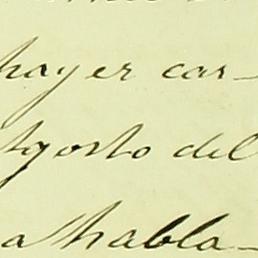 hayer car-
Agosto del
a habla-